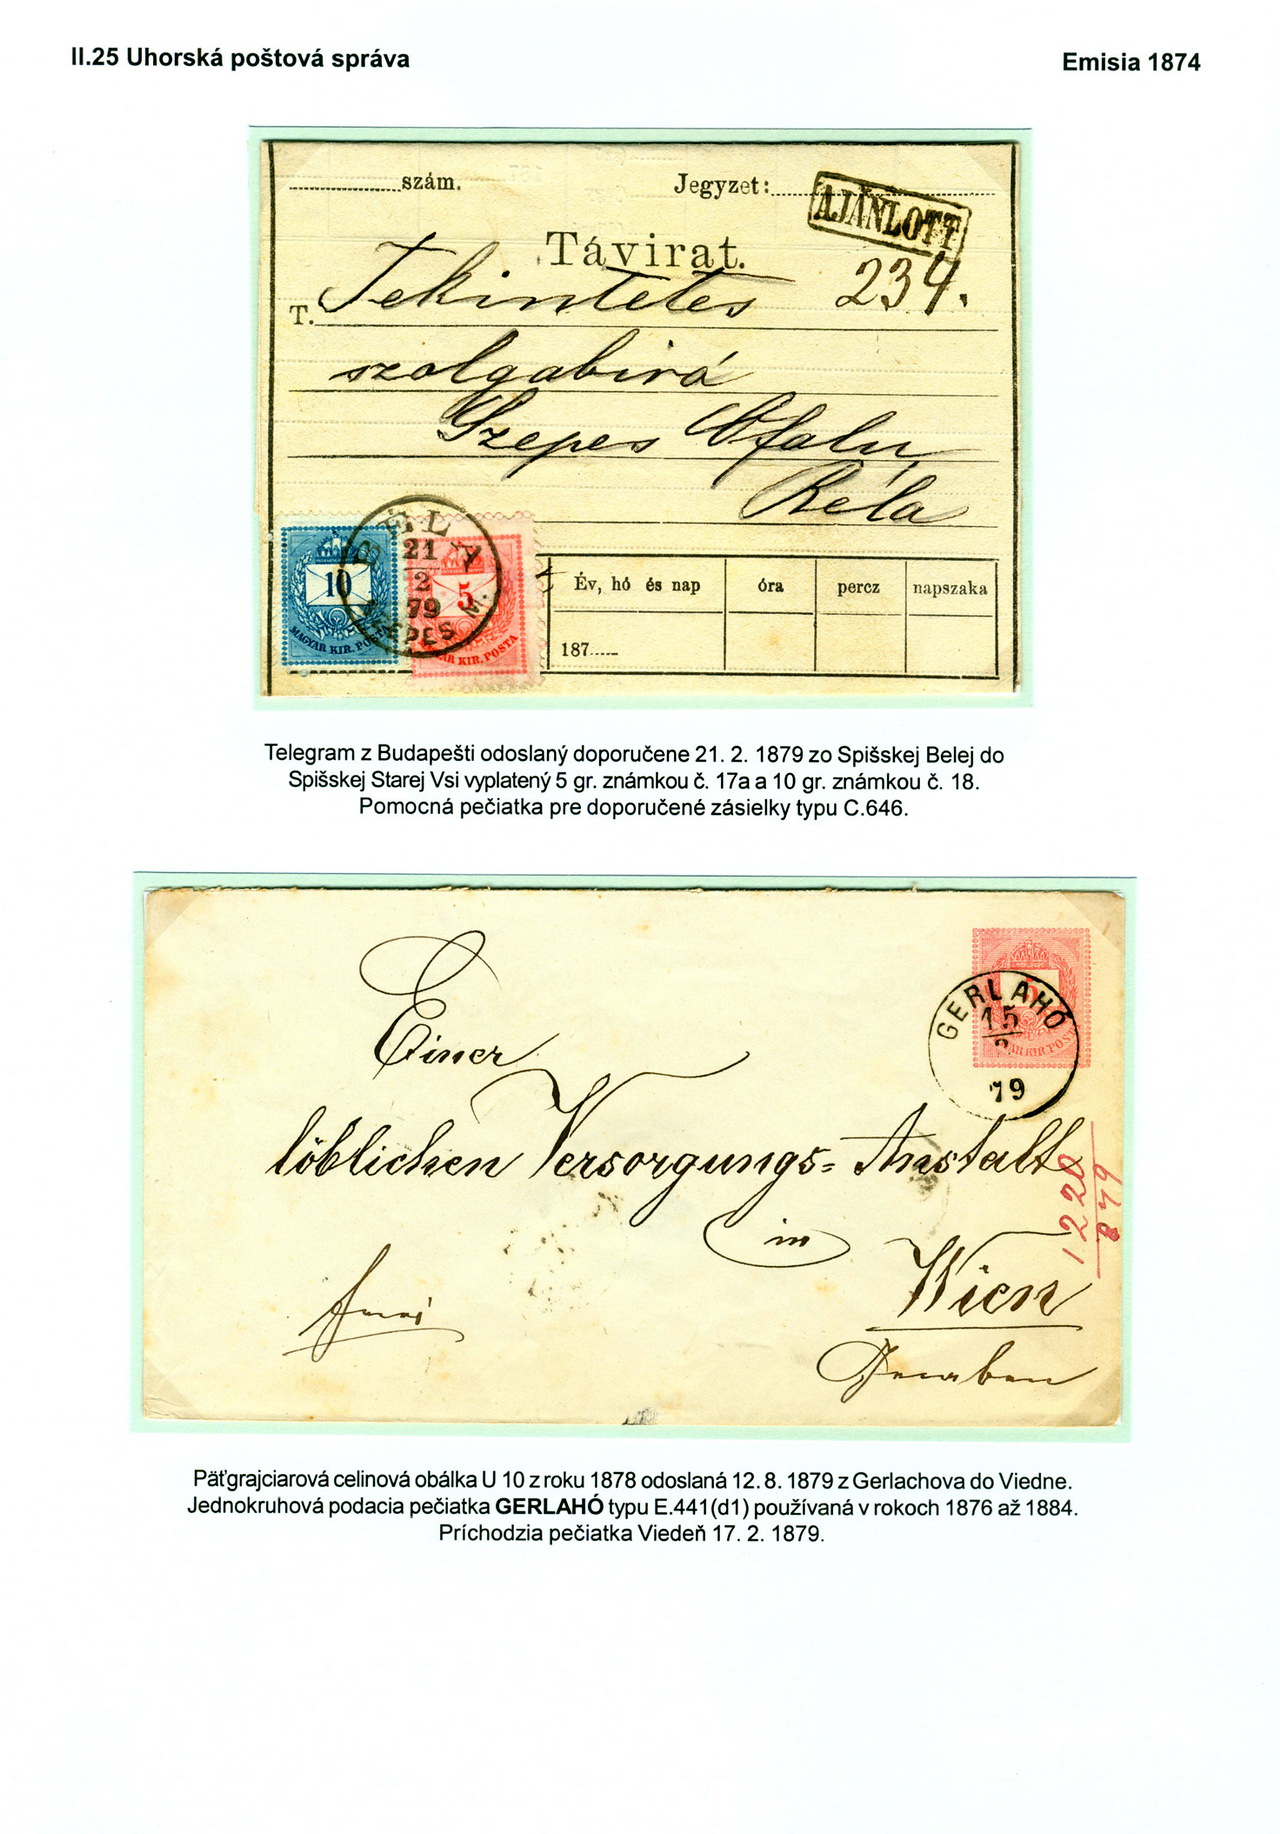 II.25 Uhorská poštová správa
Emisia 1874
szám.
Jegyzet:
AJÁNLOTT
Távirat.
234.
T. Tekintetes
szolgabiró
Szepes Ófalu
Béla
BÉLA
21
2
79
SZEPES M.
10
MAGYAR KIR. PO
5
KIR. POSTA
Év, hó és nap
óra
percz
napszaka
187
Telegram z Budapešti odoslaný doporučene 21. 2. 1879 zo Spišskej Belej do
Spišskej Starej Vsi vyplatený 5 gr. známkou č. 17a a 10 gr. známkou č. 18.
Pomocná pečiatka pre doporučené zásielky typu C.646.
GERLAHÓ
15
2
79
5
KIR. POST
Einer
löblichen Versorgungs=Anstalt
in
Wien
1220
879
Päťgrajciarová celinová obálka U 10 z roku 1878 odoslaná 12. 8. 1879 z Gerlachova do Viedne.
Jednokruhová podacia pečiatka GERLAHÓ typu E.441(d1) používaná v rokoch 1876 až 1884.
Príchodzia pečiatka Viedeň 17. 2. 1879.